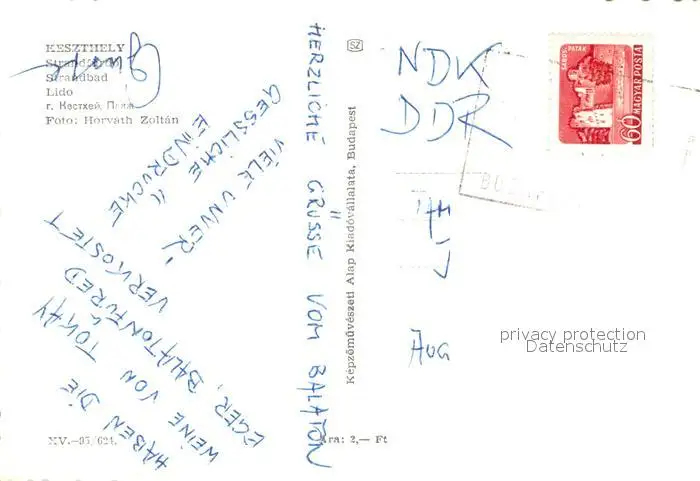 KESZTHELY
Strandfürdő
Strandbad
Lido
г. Кестхей, Пляж
Foto: Horváth Zoltán
HERZLICHE GRÜSSE VOM BALATON
VIELE UNVER-
GESSLICHE
EINDRÜCKE
HABEN DIE
WEINE VON TOKAY
EGER, BALATONFÜRED
VERKOSTET
XV.—95/624.
SZ
Képzőművészeti Alap Kiadóvállalata, Budapest
Ára: 2,— Ft
NDK
DDR
SÁROSPATAK
60 MAGYAR POSTA
Aug
privacy protection
Datenschutz